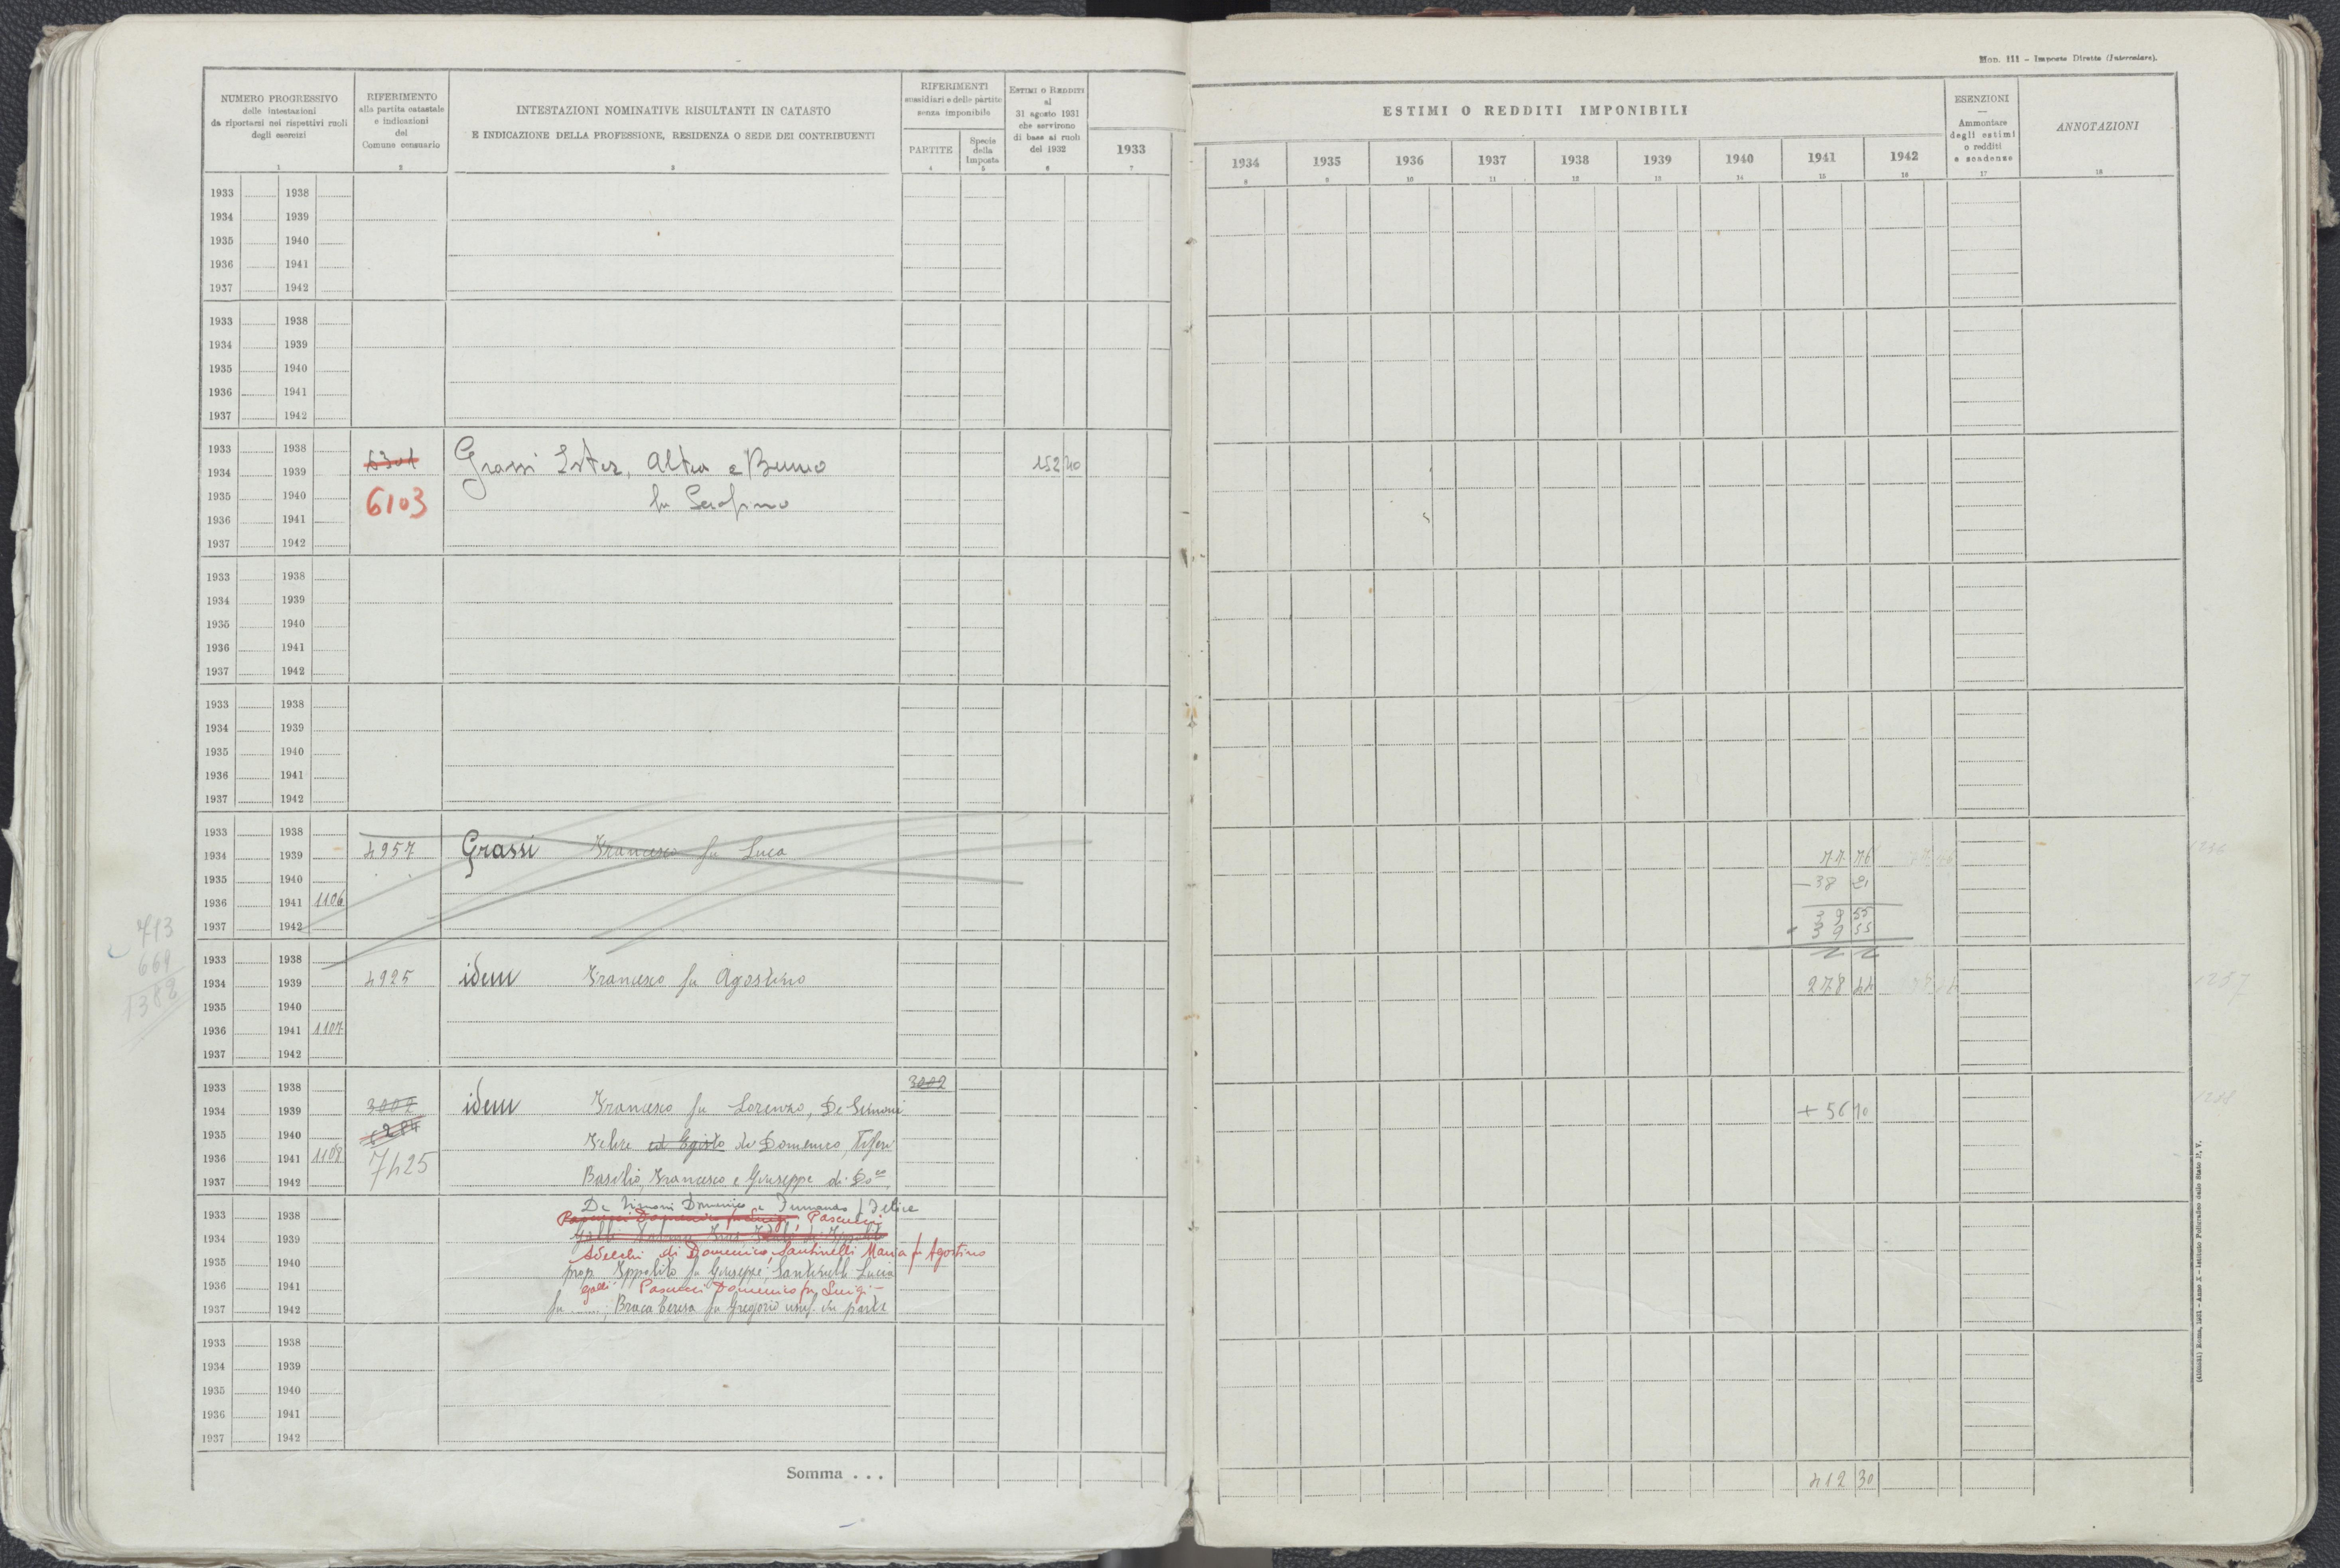 Mod. 111 - Imposte Dirette (Intercalare).
NUMERO PROGRESSIVO
delle intestazioni
da riportarsi nei rispettivi ruoli
degli esercizi
1
RIFERIMENTO
alla partita catastale
e indicazioni
del
Comune censuario
2
INTESTAZIONI NOMINATIVE RISULTANTI IN CATASTO
E INDICAZIONE DELLA PROFESSIONE, RESIDENZA O SEDE DEI CONTRIBUENTI
3
RIFERIMENTI
sussidiari e delle partite
senza imponibile
PARTITE
4
Specie
della
Imposta
5
ESTIMI O REDDITI
al
31 agosto 1931
che servirono
di base ai ruoli
del 1932
6
1933
7
ESTIMI O REDDITI IMPONIBILI
1934 1935 1936 1937 1938 1939 1940 1941 1942
8 9 10 11 12 13 14 15 16
ESENZIONI
—
Ammontare
degli estimi
o redditi
e scadenze
17
ANNOTAZIONI
18
1933 1938
1934 1939
1935 1940
1936 1941
1937 1942
1933 1938
1934 1939
1935 1940
1936 1941
1937 1942
1933 1938
1934 1939 6301 Grassi Ester, Altea e Bruno 152 40
1935 1940 6103 fu Serafino
1936 1941
1937 1942
1933 1938
1934 1939
1935 1940
1936 1941
1937 1942
1933 1938
1934 1939
1935 1940
1936 1941
1937 1942
1933 1938
1934 1939 4957 Grassi Francesco fu Luca 77 76
1935 1940 - 38 21
1936 1941 1106 39 55
1937 1942 - 39 55
713
669
1382
1933 1938
1934 1939 4925 idem Francesco fu Agostino 278 44 1257
1935 1940
1936 1941 1107
1937 1942
1933 1938 3002
1934 1939 3002 idem Francesco fu Lorenzo, De Simoni + 56 10
1935 1940 6284 Felice ed Egisto di Domenico,
1936 1941 1108 7425
1937 1942 Basilio, Francesco e Giuseppe di Do.co
1933 1938 De Simoni Domenico e Fernando / Felice
Pascucci Domenico fu Luigi, Pascucci
1934 1939
1935 1940 Adelchi di Domenico, Santinelli Maria fu Agostino
prop. Ippolito fu Giuseppe; Santinelli Lucia
1936 1941 Galli Pascucci Domenico fu Luigi -
1937 1942 fu ......; Braca Teresa fu Gregorio usuf. in parte
1933 1938
1934 1939
1935 1940
1936 1941
1937 1942
Somma . . . 412 30